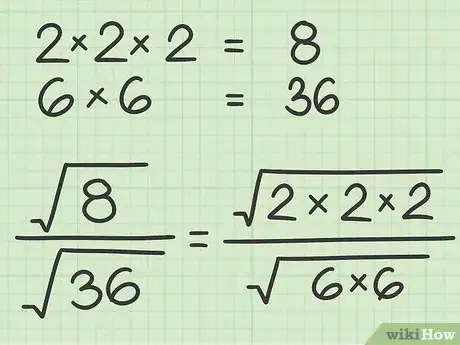 2×2×2 = 8
6×6 = 36
√8 / √36 = √2×2×2 / √6×6
wikiHow